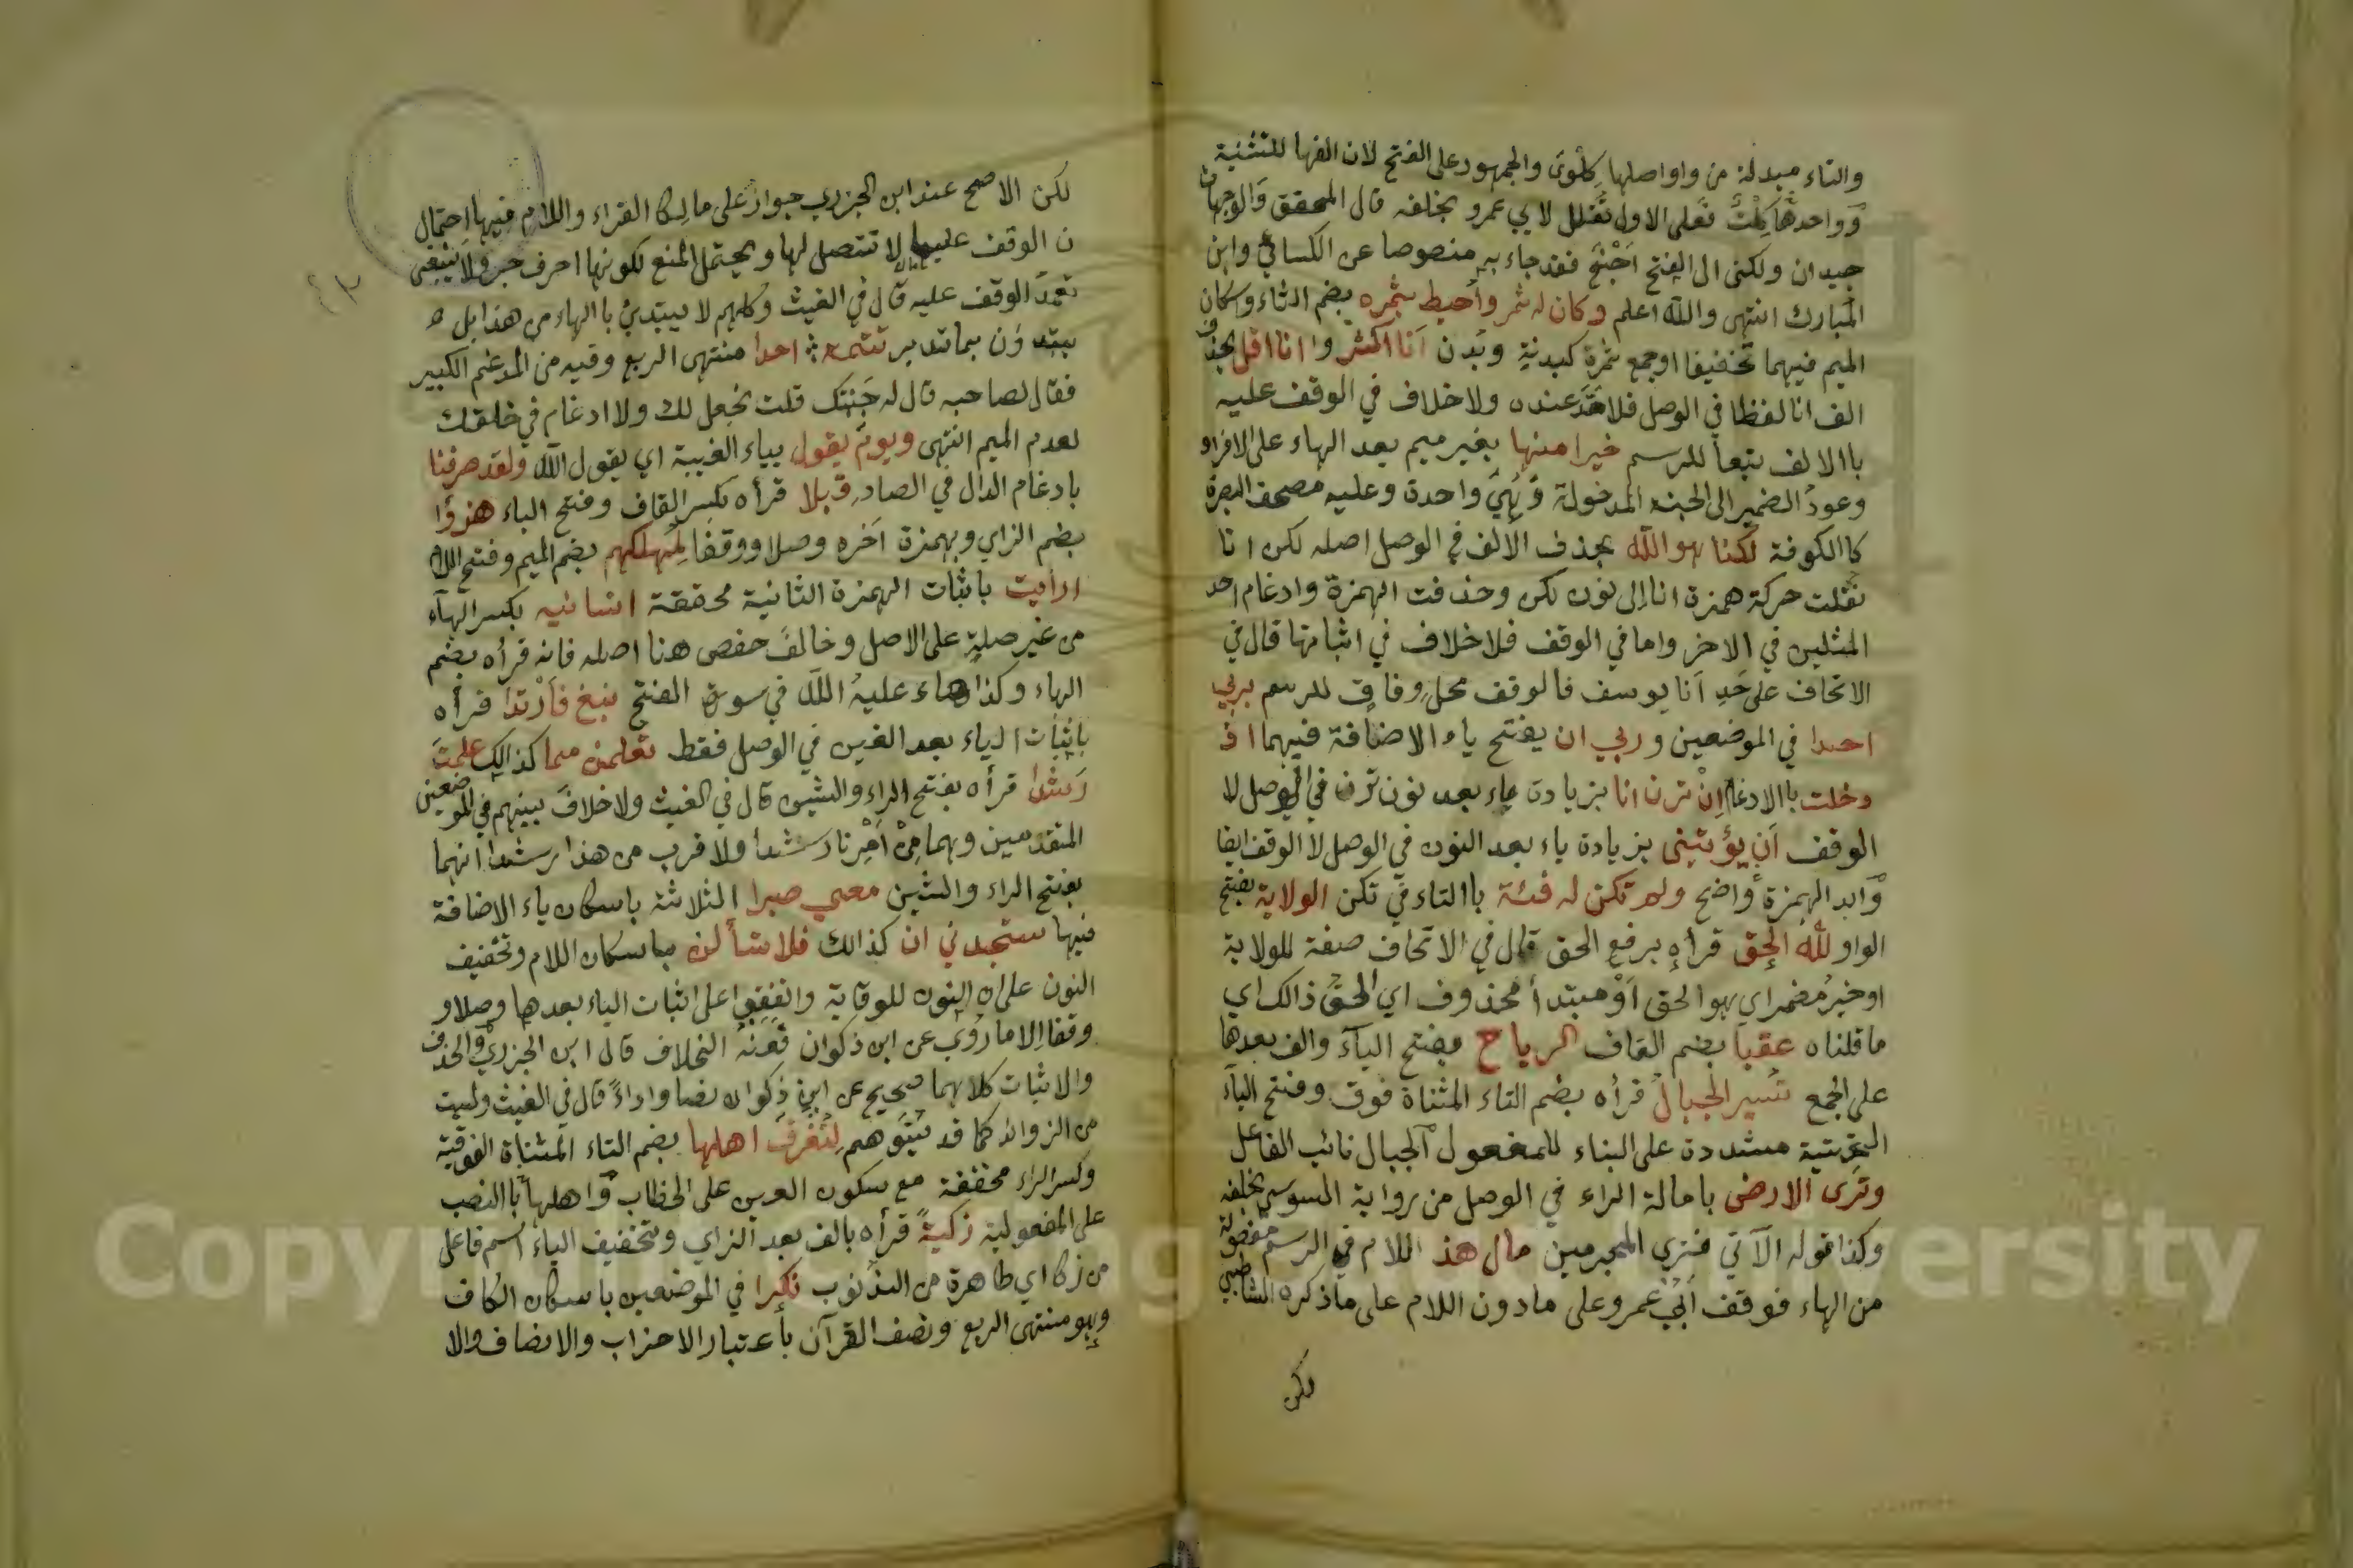 والتاء مبدلة من واو اصلها كلوى والجمهور على الفتح لان الفها للتثنية
وواحدها كلت فعلى الاول تقلل لابي عمرو بخلفه قال المحقق والوجهان
جيدان ولكنى الى الفتح اجنح فقد جاء به منصوصا عن الكسائي وابن
المبارك انتهى والله اعلم وكان له ثمر واحيط بثمره بضم الثاء واسكان
الميم فيهما تخفيفا او جمع ثمرة كبدنة وبدن انا اكثر وانا اقل بحذف
الف انا لفظا في الوصل فلا مد عنده ولا خلاف في الوقف عليه
باالالف تبعا للرسم خيرا منها بغير ميم بعد الهاء على الافراد
وعود الضمير الى الجنة المدخولة وهي واحدة وعليه مصحف البصرة
كاالكوفة لكنا هو الله بحذف الالف في الوصل اصله لكن انا
نقلت حركة همزة انا الى نون لكن وحذفت الهمزة وادغام احد
المثلين في الاخر واما في الوقف فلا خلاف في اثباتها قال في
الاتحاف على حد انا يوسف فالوقف محل وفاق للرسم بربي
احدا في الموضعين وربي ان يفتح ياء الاضافة فيهما اذ
دخلت باالادغام ان ترن انا بزيادة ياء بعد نون ترن في الوصل لا
الوقف ان يؤتيني بزيادة ياء بعد النون في الوصل لا الوقف ايضا
وابد الهمزة واضح ولم تكن له فئة باالتاء في تكن الولاية بفتح
الواو لله الحق قرأه برفع الحق قال في الاتحاف صفة للولاية
او خبر مضمر اي هو الحق او مبتدأ محذوف اي الحق ذالك اي
ما قلناه عقبا بضم القاف الرياح بفتح الياء والف بعدها
على الجمع تسير الجبال قرأه بضم التاء المثناة فوق وفتح الياء
التحتية مشددة على البناء للمفعول الجبال نائب الفاعل
وترى الارض بامالة الراء في الوصل من رواية السوسي بخلفه
وكذا قوله الآتي فترى المجرمين مال هذ اللام في الرسم مفصولة
من الهاء فوقف ابي عمرو على ما دون اللام على ما ذكره الشاطبي
لكن
لكن الاصح عند ابن الجزري جواز على ما لسكا القراء واللام فيها احتمال
ن الوقف عليها لا تتصل لها ويحتمل المنع لكونها احرف جر ولا ينبغي
تعمد الوقف عليه قال في الغيث وكلهم لا يبتدئ باالهاء من هذا بل
يبتدؤن بما تدبر تتمه احدا منتهى الربع وفيه من المدغم الكبير
فقال لصاحبه قال له جنتك قلت نجعل لك ولا ادغام في خلقك
لعدم الميم انتهى ويوم يقول بياء الغيبة اي يقول الله ولقد صرفنا
بادغام الدال في الصاد قبلا قرأه بكسر القاف وفتح الباء هزؤا
بضم الزاي وبهمزة اخره وصلا ووقفا لمهلكهم بضم الميم وفتح اللام
ارايت باثبات الهمزة الثانية محققة انسانيه بكسر الهاء
من غير صلة على الاصل وخالف حفص هنا اصله فانه قرأه بضم
الهاء وكذا هاء عليه الله في سورة الفتح نبغ فارتدا قرأه
باثبات الياء بعد الغين في الوصل فقط تعلمن مما كذالك علمت
رشدا قرأه بفتح الراء والشين قال في الغيث ولا خلاف بينهم في الموضعين
المتقدمين وهما من امرنا رشدا ولاقرب من هذا رشدا انهما
بفتح الراء والشين معي صبرا الثلاثة باسكان ياء الاضافة
فيها ستجدني ان كذالك فلا تسألن باسكان اللام وتخفيف
النون على ان النون للوقاية واتفقوا على اثبات الياء بعدها وصلا و
وقفا الا ما روي عن ابن ذكوان فعنه الخلاف قال ابن الجزري والحذف
والاثبات كلاهما صحيح عن ابن ذكوان نصا واداء قال في الغيث وليست
من الزوائد كما قد يتوهم لتغرق اهلها بضم التاء المثناة الفوقية
وكسر الراء مخففة مع سكون الغين على الخطاب واهلها باالنصب
على المفعولية زكية قرأه بالف بعد الزاي وتخفيف الياء اسم فاعل
من زكا اي طاهرة من الذنوب نكرا في الموضعين باسكان الكاف
وهو منتهى الربع ونصف القرآن بأعتبار الاحزاب والانصاف والا